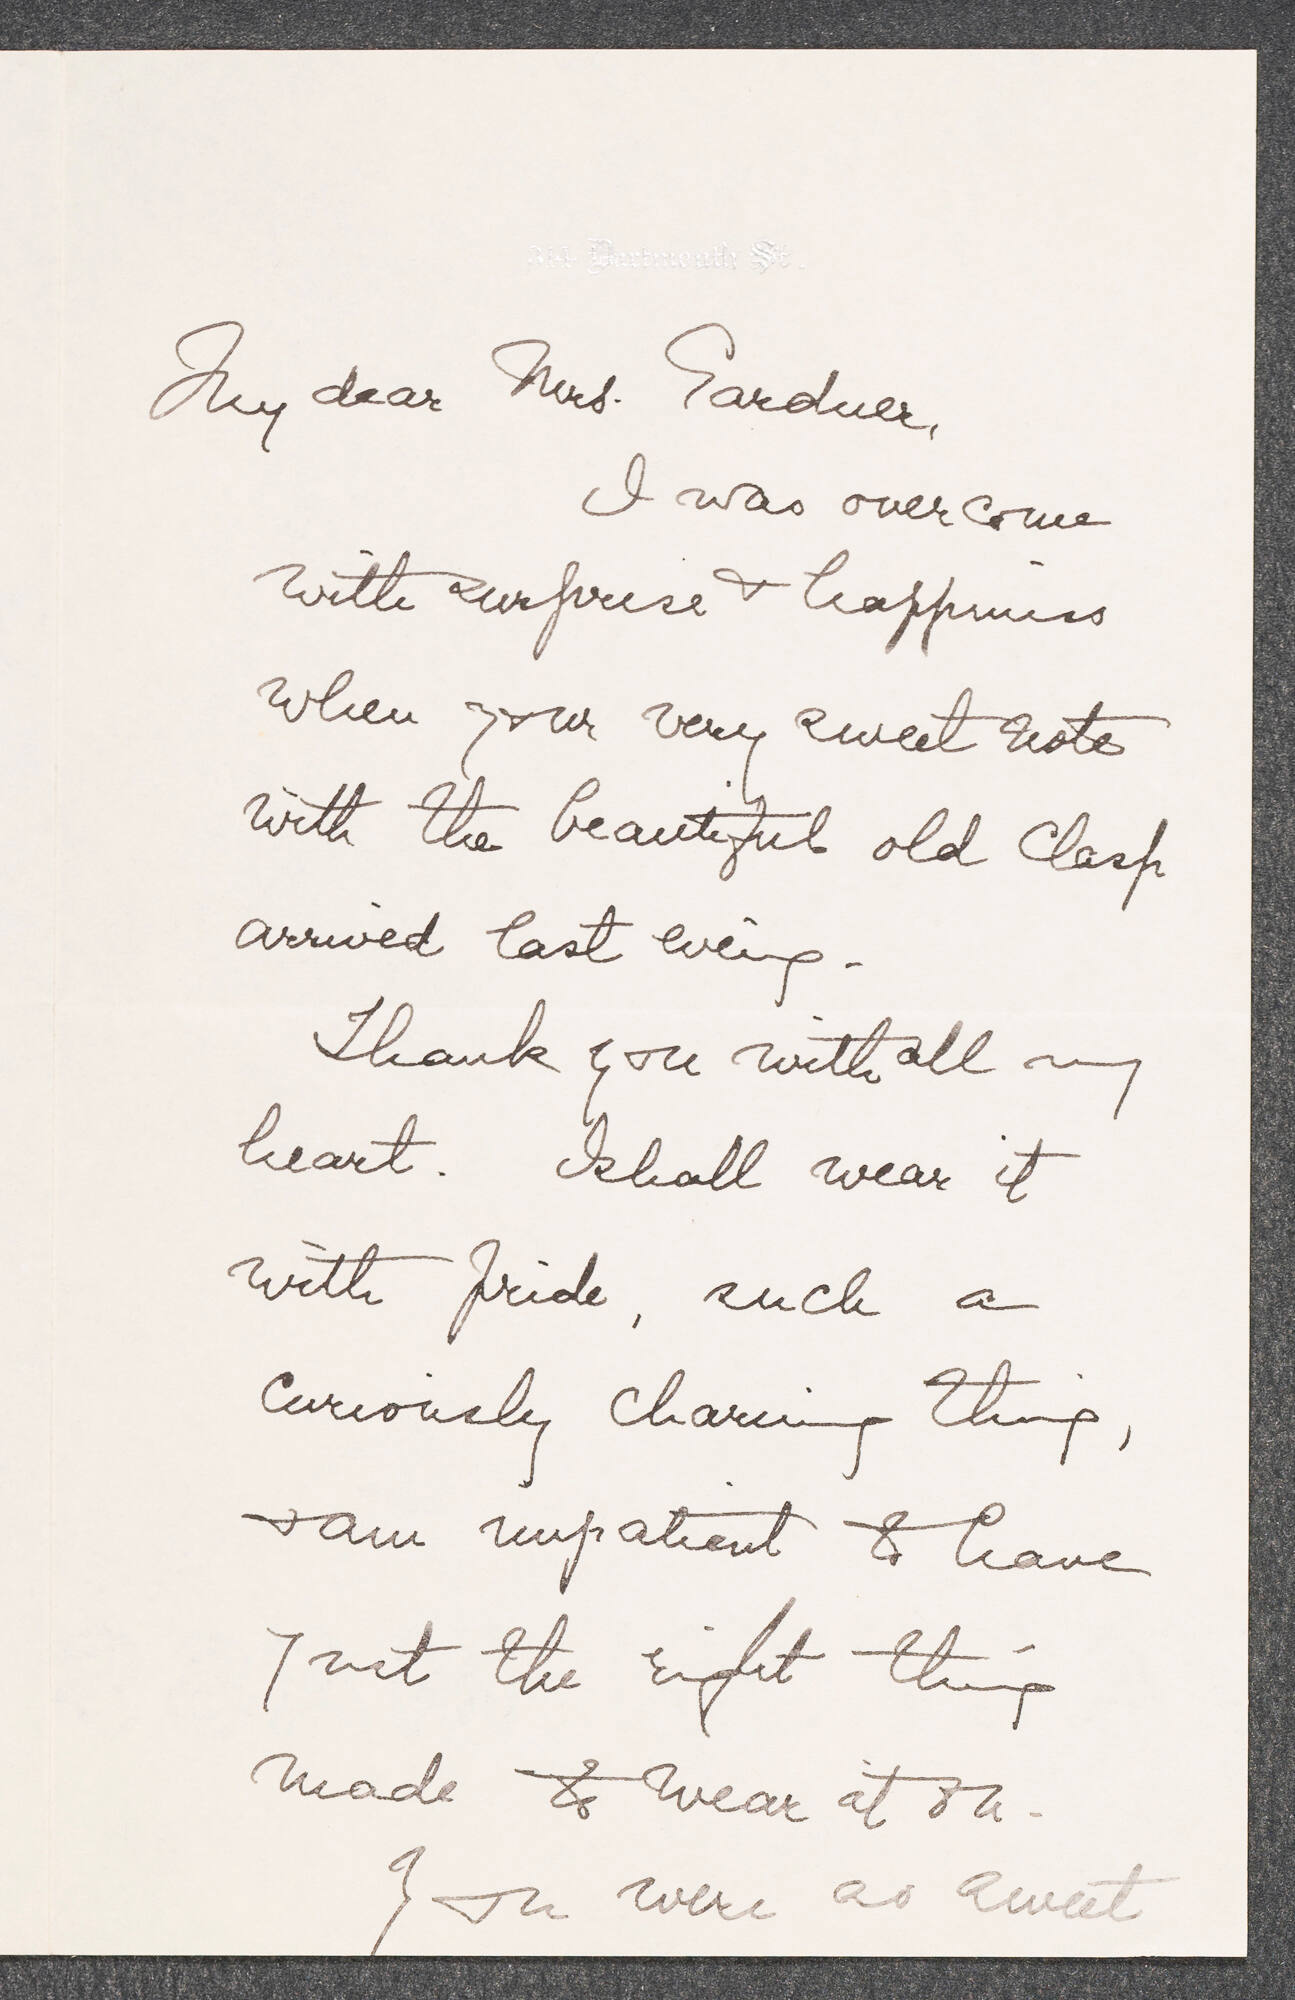 Dartmouth St.
My dear Mrs. Gardner,
I was overcome
with surprise & happiness
when your very sweet note
with the beautiful old clasp
arrived last eveing.
Thank you with all my
heart. I shall wear it
with pride, such a
curiously charming thing,
& am impatient to have
just the right thing
made to wear it on.
You were as sweet